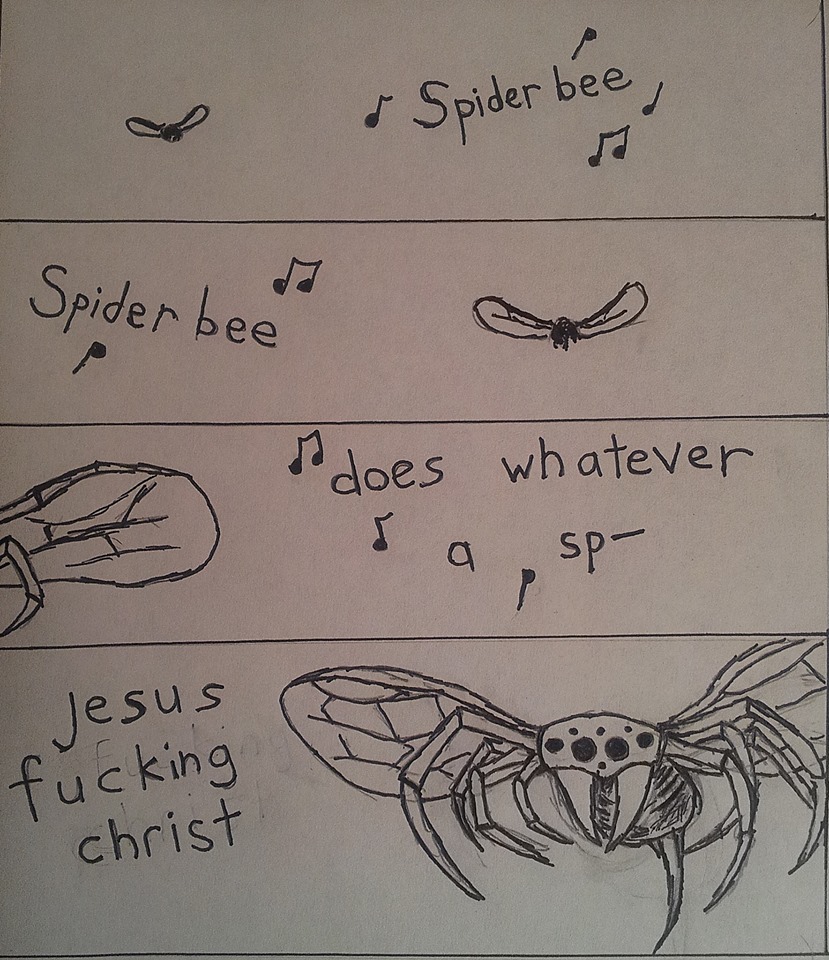 Spider bee
Spider bee
does whatever
a sp-
jesus
fucking
christ